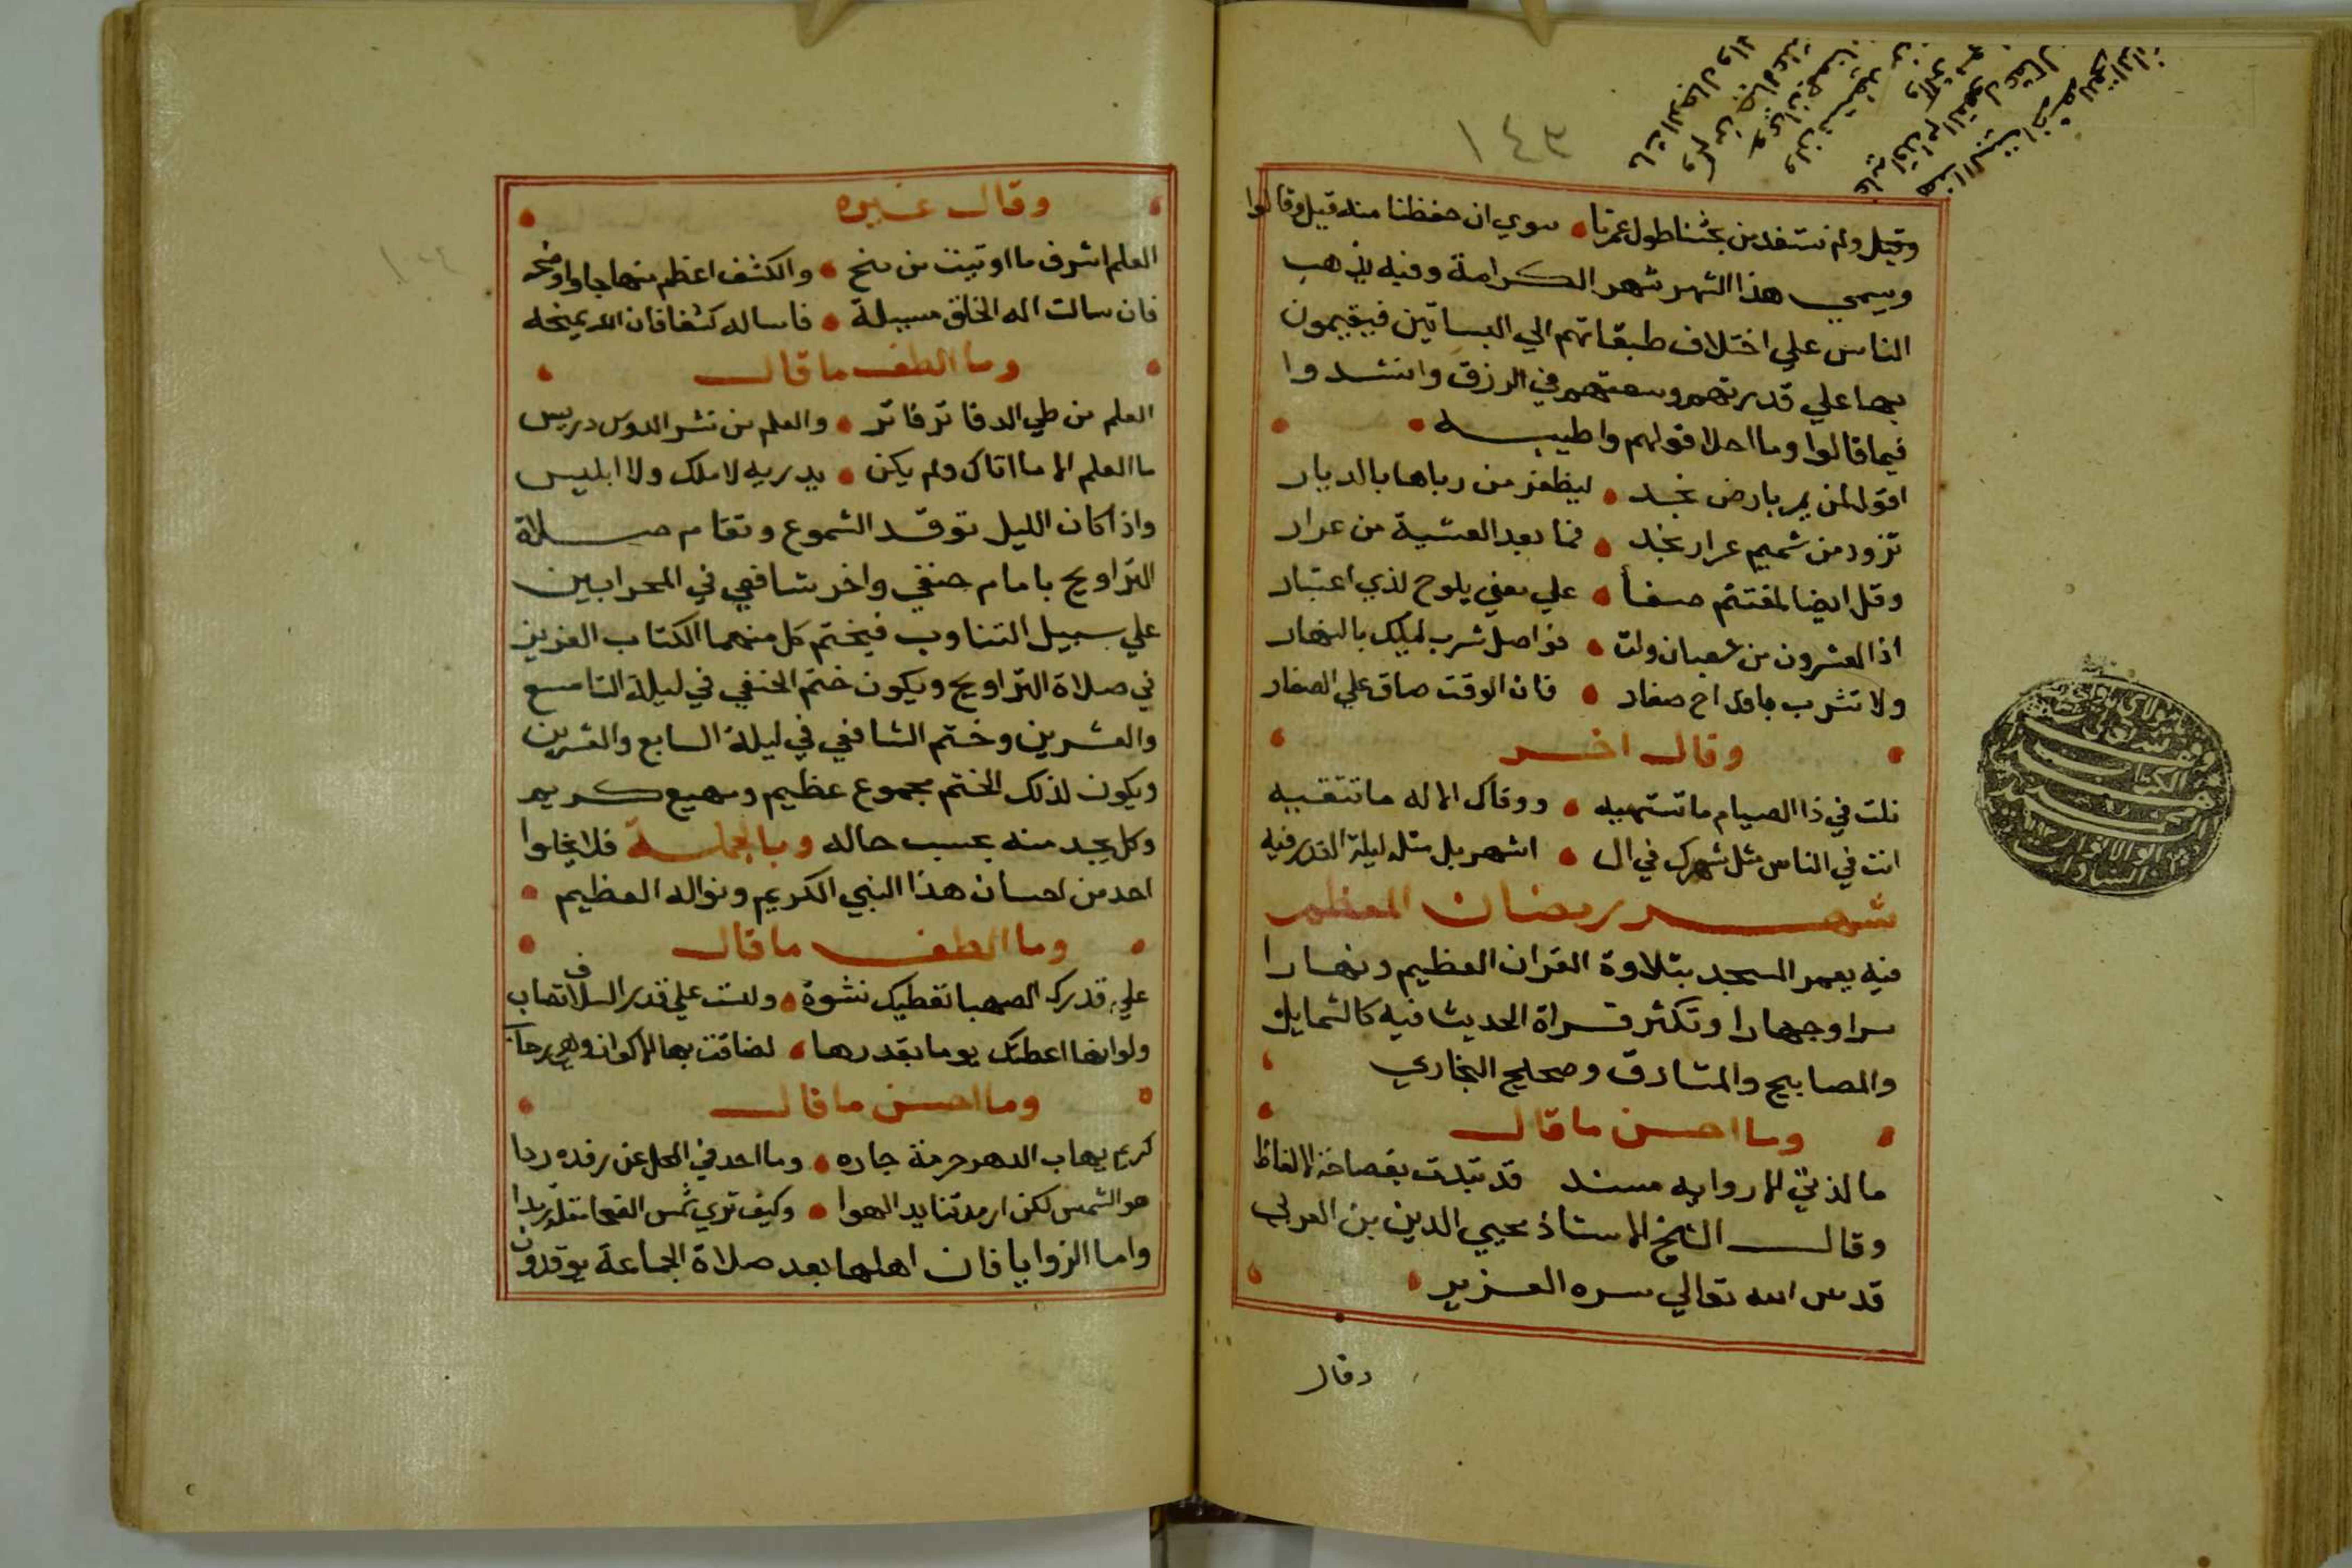 ١٤٣
وقيل ولم نستفد من بحثنا طول عمرنا • سوي ان حفظنا منه قيل وقالوا
ويسمي هذا الشهر شهر الكرامة وفيه يذهب
الناس علي اختلاف طبقاتهم الي البساتين فيقيمون
بها علي قدرتهم وسعتهم في الرزق وانشدوا
فيما قالوا وما احلا قولهم واطيبه •
اقول لمن يمر بارض نجد • ليظفر من رباها بالديار
تزود من شميم عرار نجد • فما بعد العشية من عرار
وقل ايضا لمغتنم صفا • علي معني يلوح لذي اعتبار
اذا العشرون من شعبان ولت • فواصل شرب ليلك بالنهار
ولا تشرب باقداح صغار • فان الوقت ضاق علي الصغار
• وقال اخر •
نلت في ذا الصيام ما تشتهيه • ووقاك الاله ما تتقيه
انت في الناس مثل شهرك في ال • اشهر بل مثله ليلة القدر فيه
شهر رمضان المعظم
فيه يعمر المسجد بتلاوة القران العظيم ونهارا
سرا وجهارا وتكثر قراة الحديث فيه كالشمايل
والمصابيح والمشارق وصحيح البخاري •
• وما احسن ما قال •
ما لذتي الا رواية مسند قد تبدت بفصاحة الالفاظ
وقال الشيخ الاستاذ محيي الدين بن العربي
قدس الله تعالي سره العزيز •
وقال
• وقال غيره •
العلم اشرف ما اوتيت من منح • والكشف اعظم منهاجا واوضحه
فان سالت اله الخلق مسيلة • فاساله كشفا فان الله يمنحه
• وما الطف ما قال •
العلم من طي الدفاتر فاتر • والعلم من نشر الدوس دريس
ما العلم الا ما اتاك ولم يكن • يدريه لا ملك ولا ابليس
واذا كان الليل توقد الشموع وتقام صلاة
التراويح بامام حنفي واخر شافعي في المحرابين
علي سبيل التناوب فيختم كل منهما الكتاب العزيز
في صلاة التراويح ويكون ختم الحنفي في ليلة التاسع
والعشرين وختم الشافعي في ليلة السابع والعشرين
ويكون لذلك الختم مجموع عظيم وسهيع كريم
وكل يجد منه بحسب حاله وبالجملة فلا يخلوا
احد من احسان هذا النبي الكريم ونواله العظيم •
• وما الطف ما قال •
علي قدرك الصهبا تعطيك نشوة • ولست علي قدر السلاف تصاب
ولو انها اعطتك يوما بقدرها • لضاقت بها الاكوان وهي رحاب
• وما احسن ما قال •
كريم يهاب الدهر حرمة جاره • وما احد في المحل عن رفده ردا
هو الشمس لكن ارمدتنا يد الهوا • وكيف تري شمس الضحا مقلة رمدا
واما الزوايا فان اهلها بعد صلاة الجماعة يوقدون